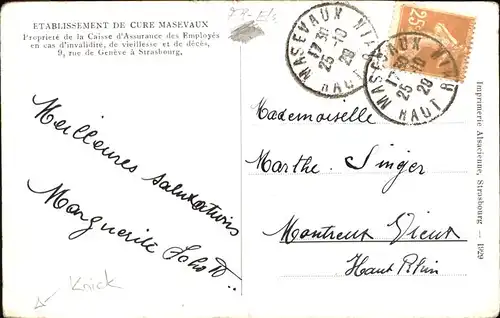 ETABLISSEMENT DE CURE MASEVAUX
Propriété de la Caisse d'Assurance des Employés
en cas d'invalidité, de vieillesse et de décès,
9, rue de Genève à Strasbourg.
Meilleures salutations
Marguerite
Knick
MASEVAUX
HAUT R
25
MASEVAUX
HAUT R
Mademoiselle
Marthe Singer
Montreux Vieux
Haut Rhin
Imprimerie Alsacienne, Strasbourg — 1929